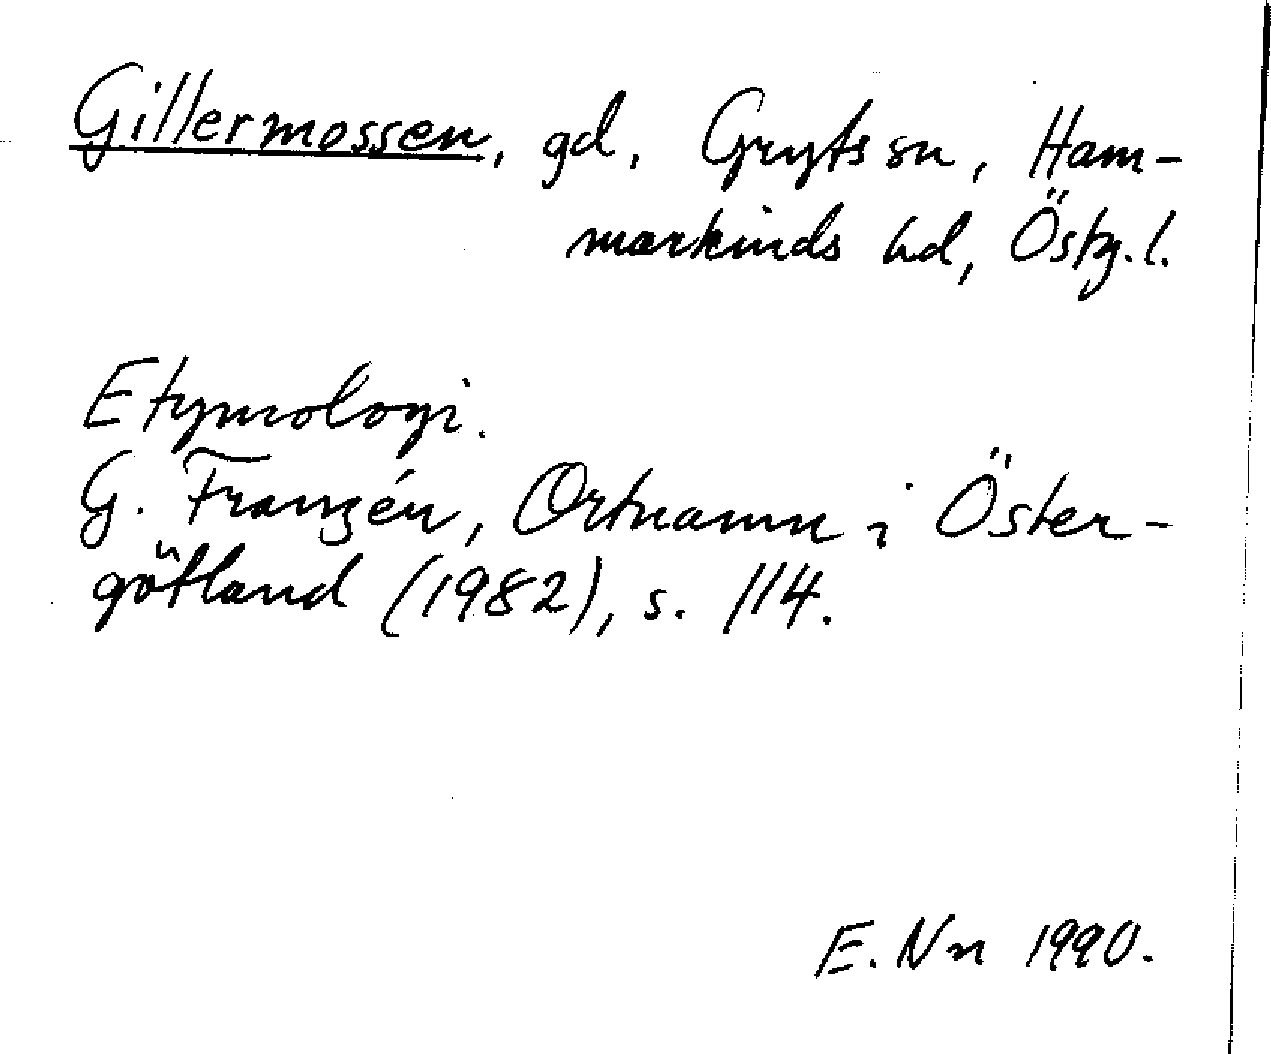 Gillermossen, gd, Gryts sn, Ham-
markinds hd, Östg.l.
Etymologi.
G. Franzén, Ortnamn i Öster-
götland (1982), s. 114.
E. Nn 1990.